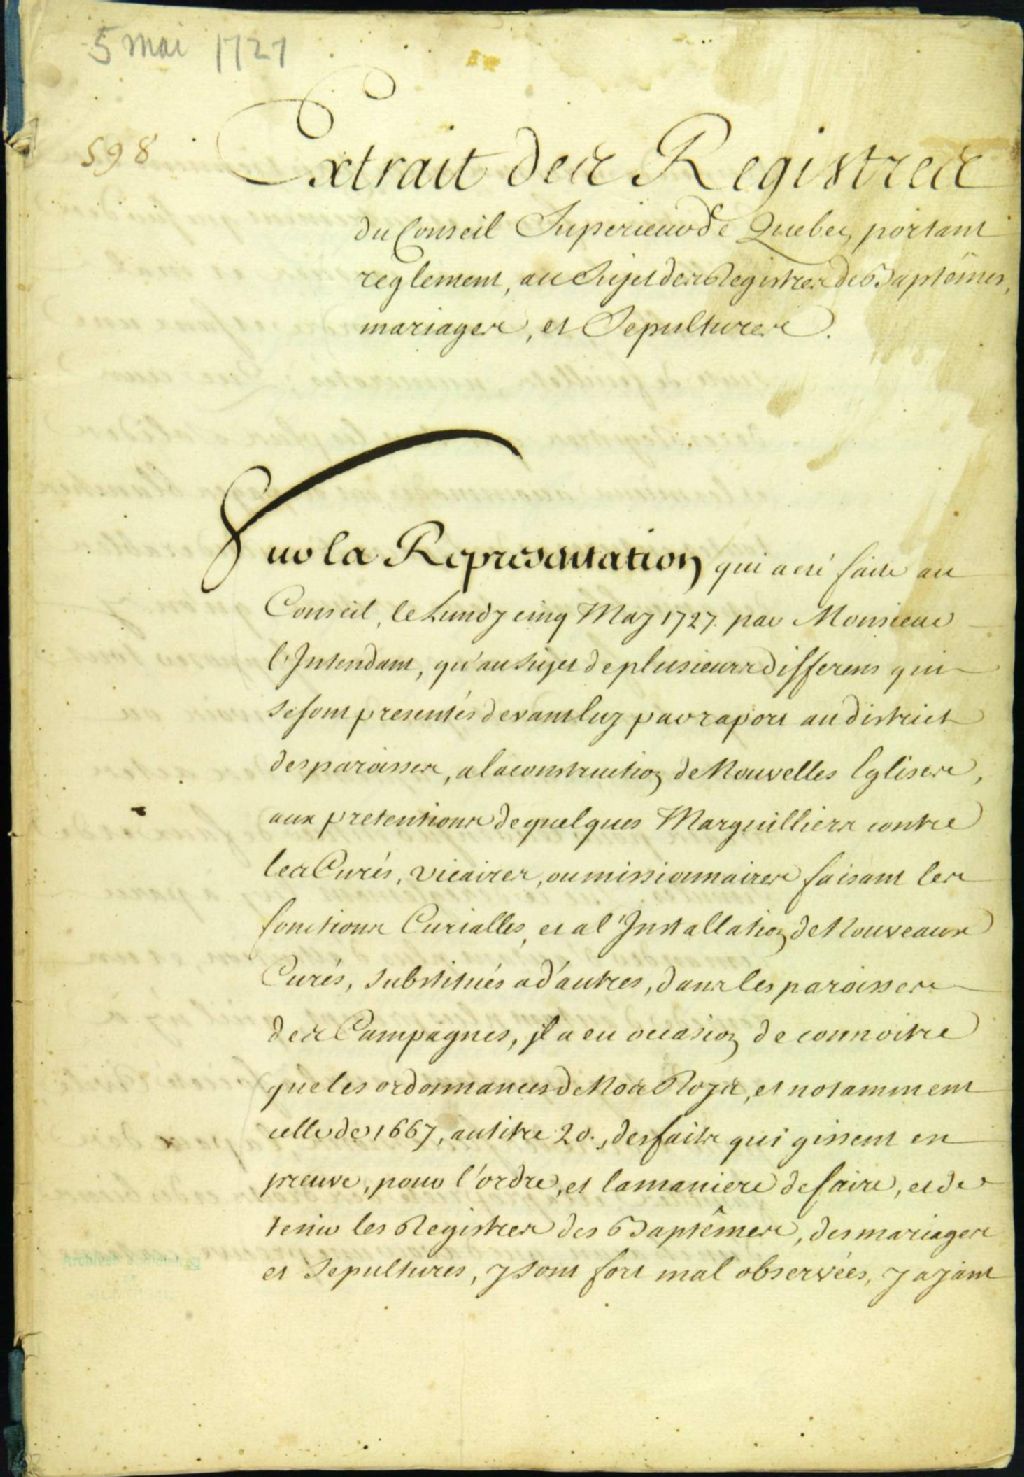 5 mai 1727
598
Extrait des Registres
du Conseil Superieur de Quebec, portant
reglement, au sujet des Registres de Baptêmes,
mariages, et Sepultures.
Sur la Representation qui a eté faite au
Conseil, le Lundy cinq May 1727. par Monsieur
l'Intendant, qu'au sujet de plusieurs differens qui
se sont presentés devant luy par raport au district
des paroisses, a la construction de Nouvelles Eglises,
aux pretentions de quelques Marguilliers contre
les Curés, vicaires, ou missionnaires faisant les
fonctions Curialles, et a l'Installation de Nouveaux
Curés, substitués a d'autres, dans les paroisses
des Campagnes, il a eu occasion de connoitre
que les ordonnances de Nos Roys, et notamment
celle de 1667, au titre 20., des faits qui gissent en
preuve, pour l'ordre, et la maniere de faire, et de
tenir les Registres des Baptêmes, des mariages
et Sepultures, y sont fort mal observées, y ayant